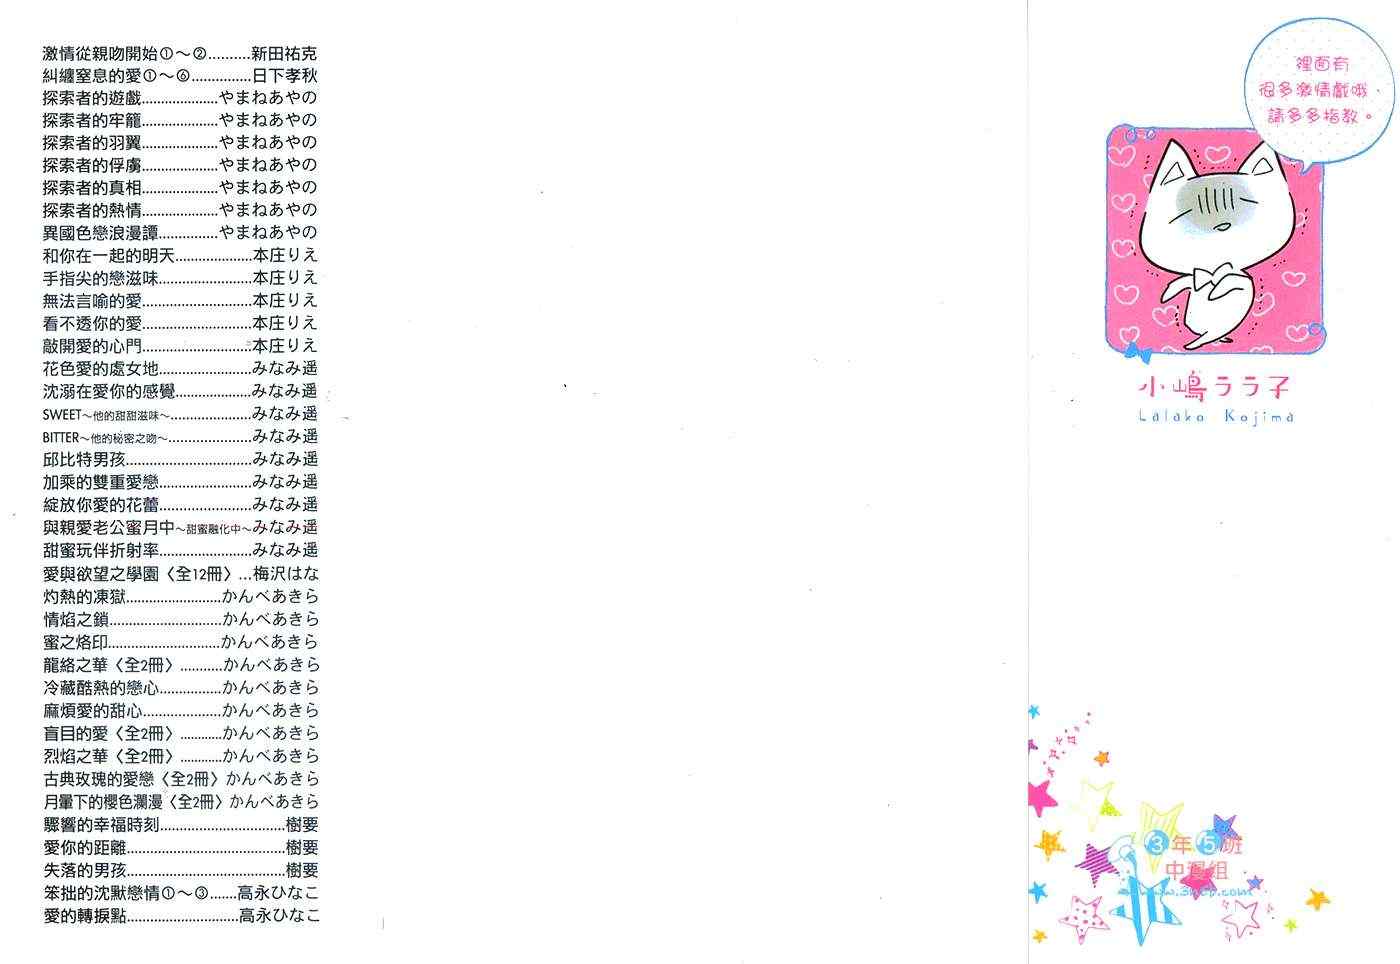 激情從親吻開始①～②..........新田祐克
糾纏窒息的愛①～⑥...............日下孝秋
探索者的遊戲...................やまねあやの
探索者的牢籠...................やまねあやの
探索者的羽翼...................やまねあやの
探索者的俘虜...................やまねあやの
探索者的真相...................やまねあやの
探索者的熱情...................やまねあやの
異國色戀浪漫譚...............やまねあやの
和你在一起的明天...................本庄りえ
手指尖的戀滋味.......................本庄りえ
無法言喻的愛...........................本庄りえ
看不透你的愛...........................本庄りえ
敲開愛的心門...........................本庄りえ
花色愛的處女地.......................みなみ遥
沈溺在愛你的感覺...................みなみ遥
SWEET～他的甜甜滋味～....................みなみ遥
BITTER～他的秘密之吻～.....................みなみ遥
邱比特男孩...............................みなみ遥
加乘的雙重愛戀.......................みなみ遥
綻放你愛的花蕾.......................みなみ遥
與親愛老公蜜月中～甜蜜融化中～みなみ遥
甜蜜玩伴折射率.......................みなみ遥
愛與欲望之學園〈全12冊〉...梅沢はな
灼熱的凍獄........................かんべあきら
情焰之鎖............................かんべあきら
蜜之烙印............................かんべあきら
龍絡之華〈全2冊〉...........かんべあきら
冷藏酷熱的戀心...............かんべあきら
麻煩愛的甜心...................かんべあきら
盲目的愛〈全2冊〉...........かんべあきら
烈焰之華〈全2冊〉...........かんべあきら
古典玫瑰的愛戀〈全2冊〉かんべあきら
月暈下的櫻色瀾漫〈全2冊〉かんべあきら
驟響的幸福時刻...............................樹要
愛你的距離.......................................樹要
失落的男孩.......................................樹要
笨拙的沈默戀情①～③.......高永ひなこ
愛的轉捩點............................高永ひなこ
裡面有
很多激情戲哦，
請多多指教。
小嶋ララ子
Lalako Kojima
3年5班
中漫組